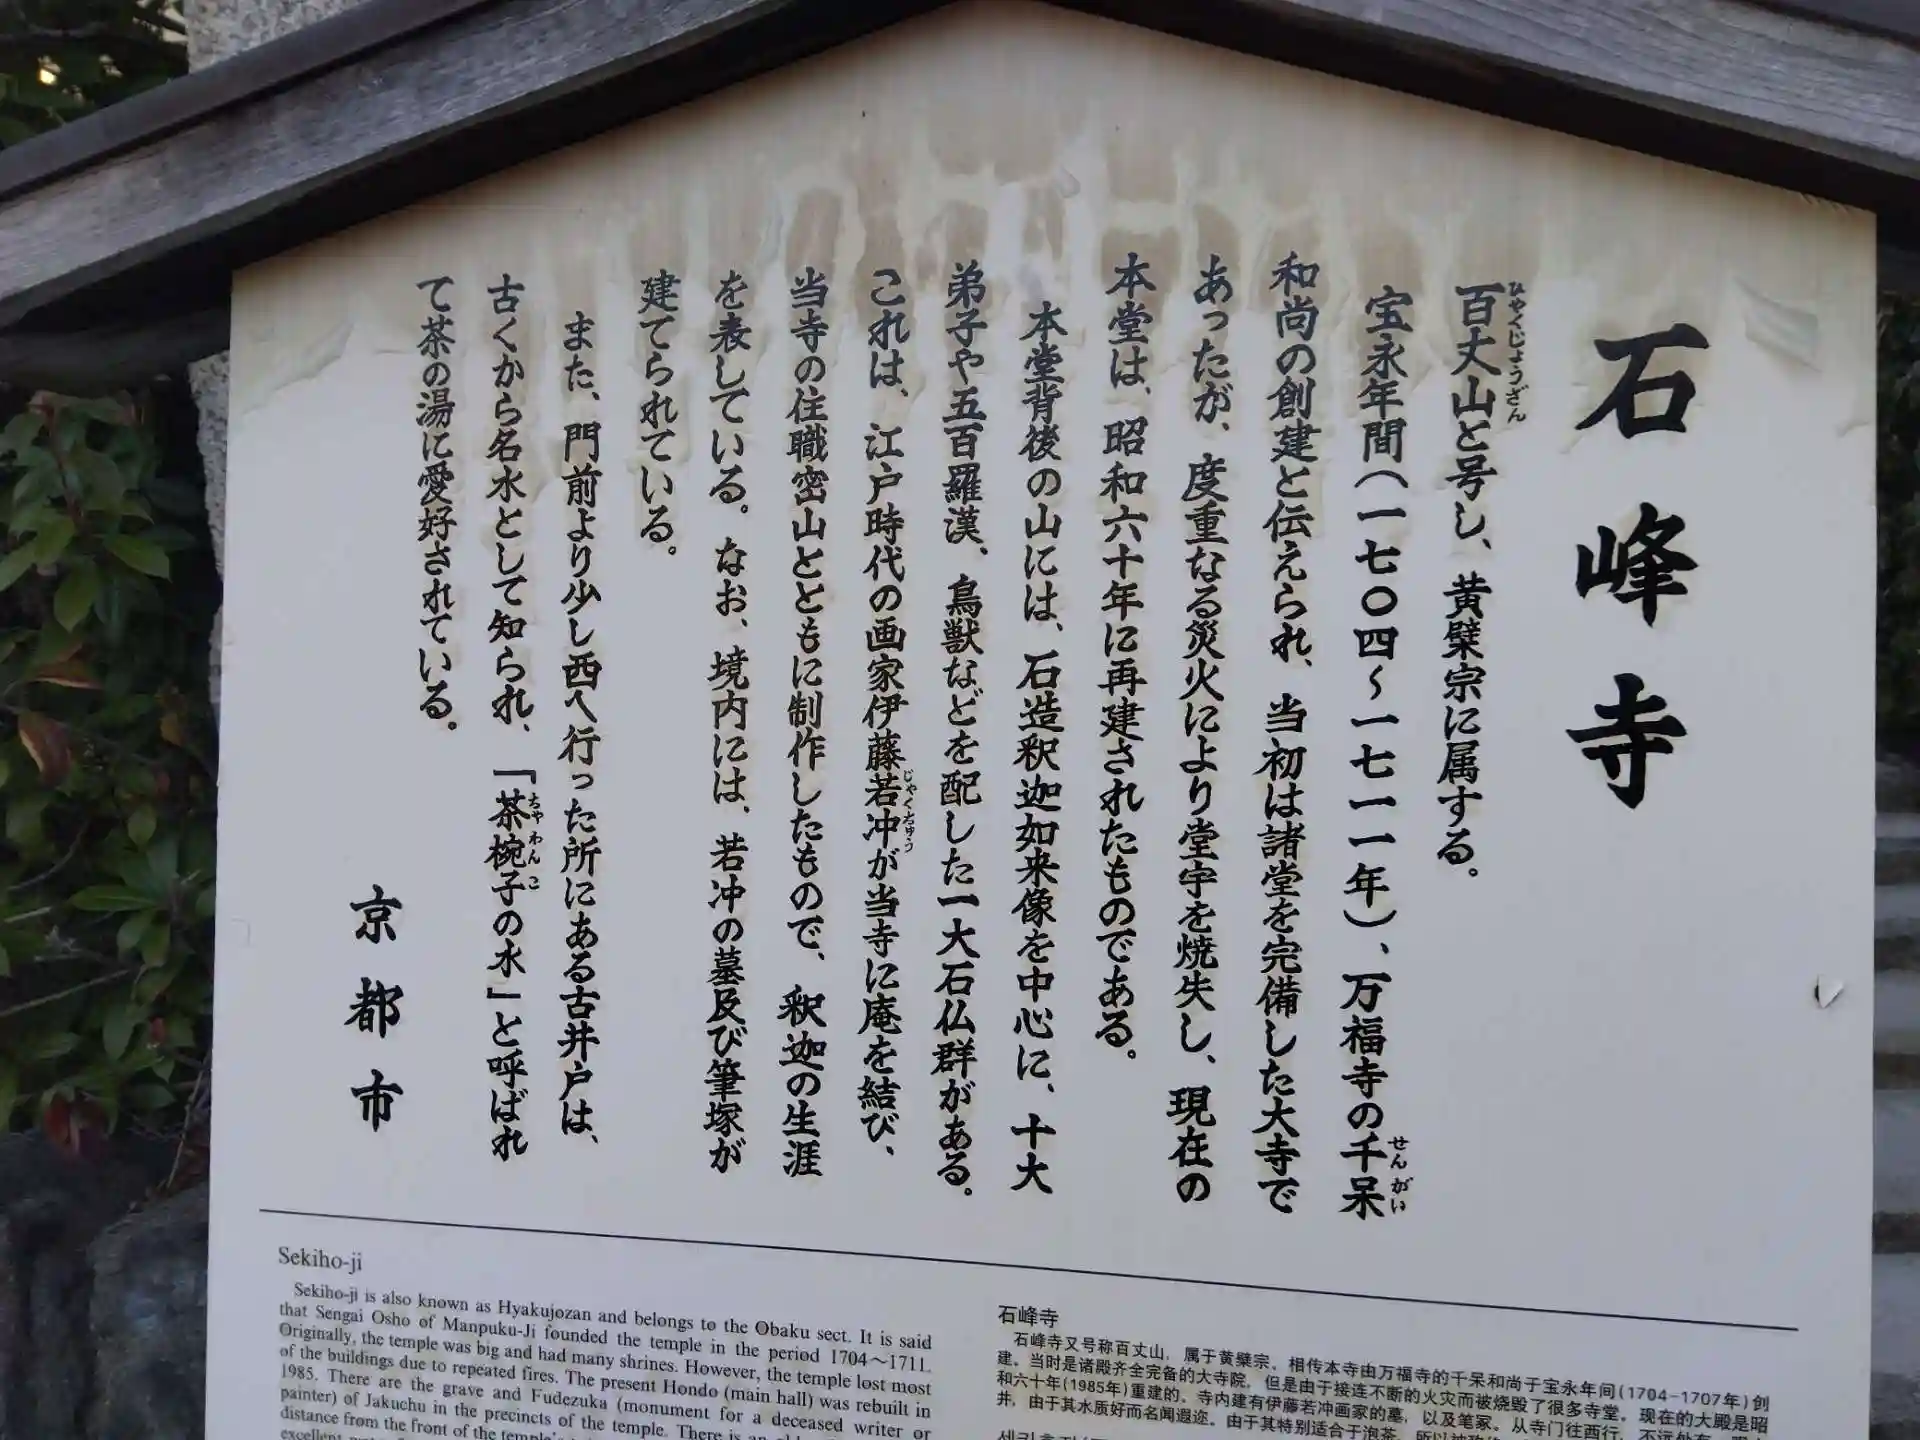 石峰寺
百丈山と号し、黄檗宗に属する。
ひゃくじょうざん
宝永年間(一七〇四～一七一一年)、万福寺の千呆
せんがい
和尚の創建と伝えられ、当初は諸堂を完備した大寺で
あったが、度重なる災火により堂宇を焼失し、現在の
本堂は、昭和六十年に再建されたものである。
本堂背後の山には、石造釈迦如来像を中心に、十大
弟子や五百羅漢、鳥獣などを配した一大石仏群がある。
これは、江戸時代の画家伊藤若冲が当寺に庵を結び、
じゃくちゅう
当寺の住職密山とともに制作したもので、釈迦の生涯
を表している。なお、境内には、若冲の墓及び筆塚が
建てられている。
また、門前より少し西へ行った所にある古井戸は、
古くから名水として知られ、「茶椀子の水」と呼ばれ
ちゃわんこ
て茶の湯に愛好されている。
京都市
Sekiho-ji
Sekiho-ji is also known as Hyakujozan and belongs to the Obaku sect. It is said
that Sengai Osho of Manpuku-Ji founded the temple in the period 1704～1711.
Originally, the temple was big and had many shrines. However, the temple lost most
of the buildings due to repeated fires. The present Hondo (main hall) was rebuilt in
1985. There are the grave and Fudezuka (monument for a deceased writer or
painter) of Jakuchu in the precincts of the temple. There is an
distance from the front of the temple's
石峰寺
石峰寺又号称百丈山，属于黄檗宗。相传本寺由万福寺的千呆和尚于宝永年间(1704-1707年)创
建。当时是诸殿齐全完备的大寺院，但是由于接连不断的火灾而被烧毁了很多寺堂。现在的大殿是昭
和六十年(1985年)重建的。寺内建有伊藤若冲画家的墓，以及笔冢。从寺门往西行，不远处有
井，由于其水质好而名闻遐迩。由于其特别适合于泡茶，所以被称